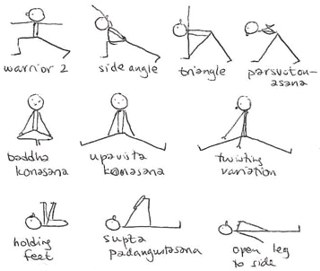 warrior 2
side angle
triangle
parsvotton-
asana
baddha
konasana
upavista
konasana
twisting
variation
holding
feet
supta
padangustasana
open leg
to side